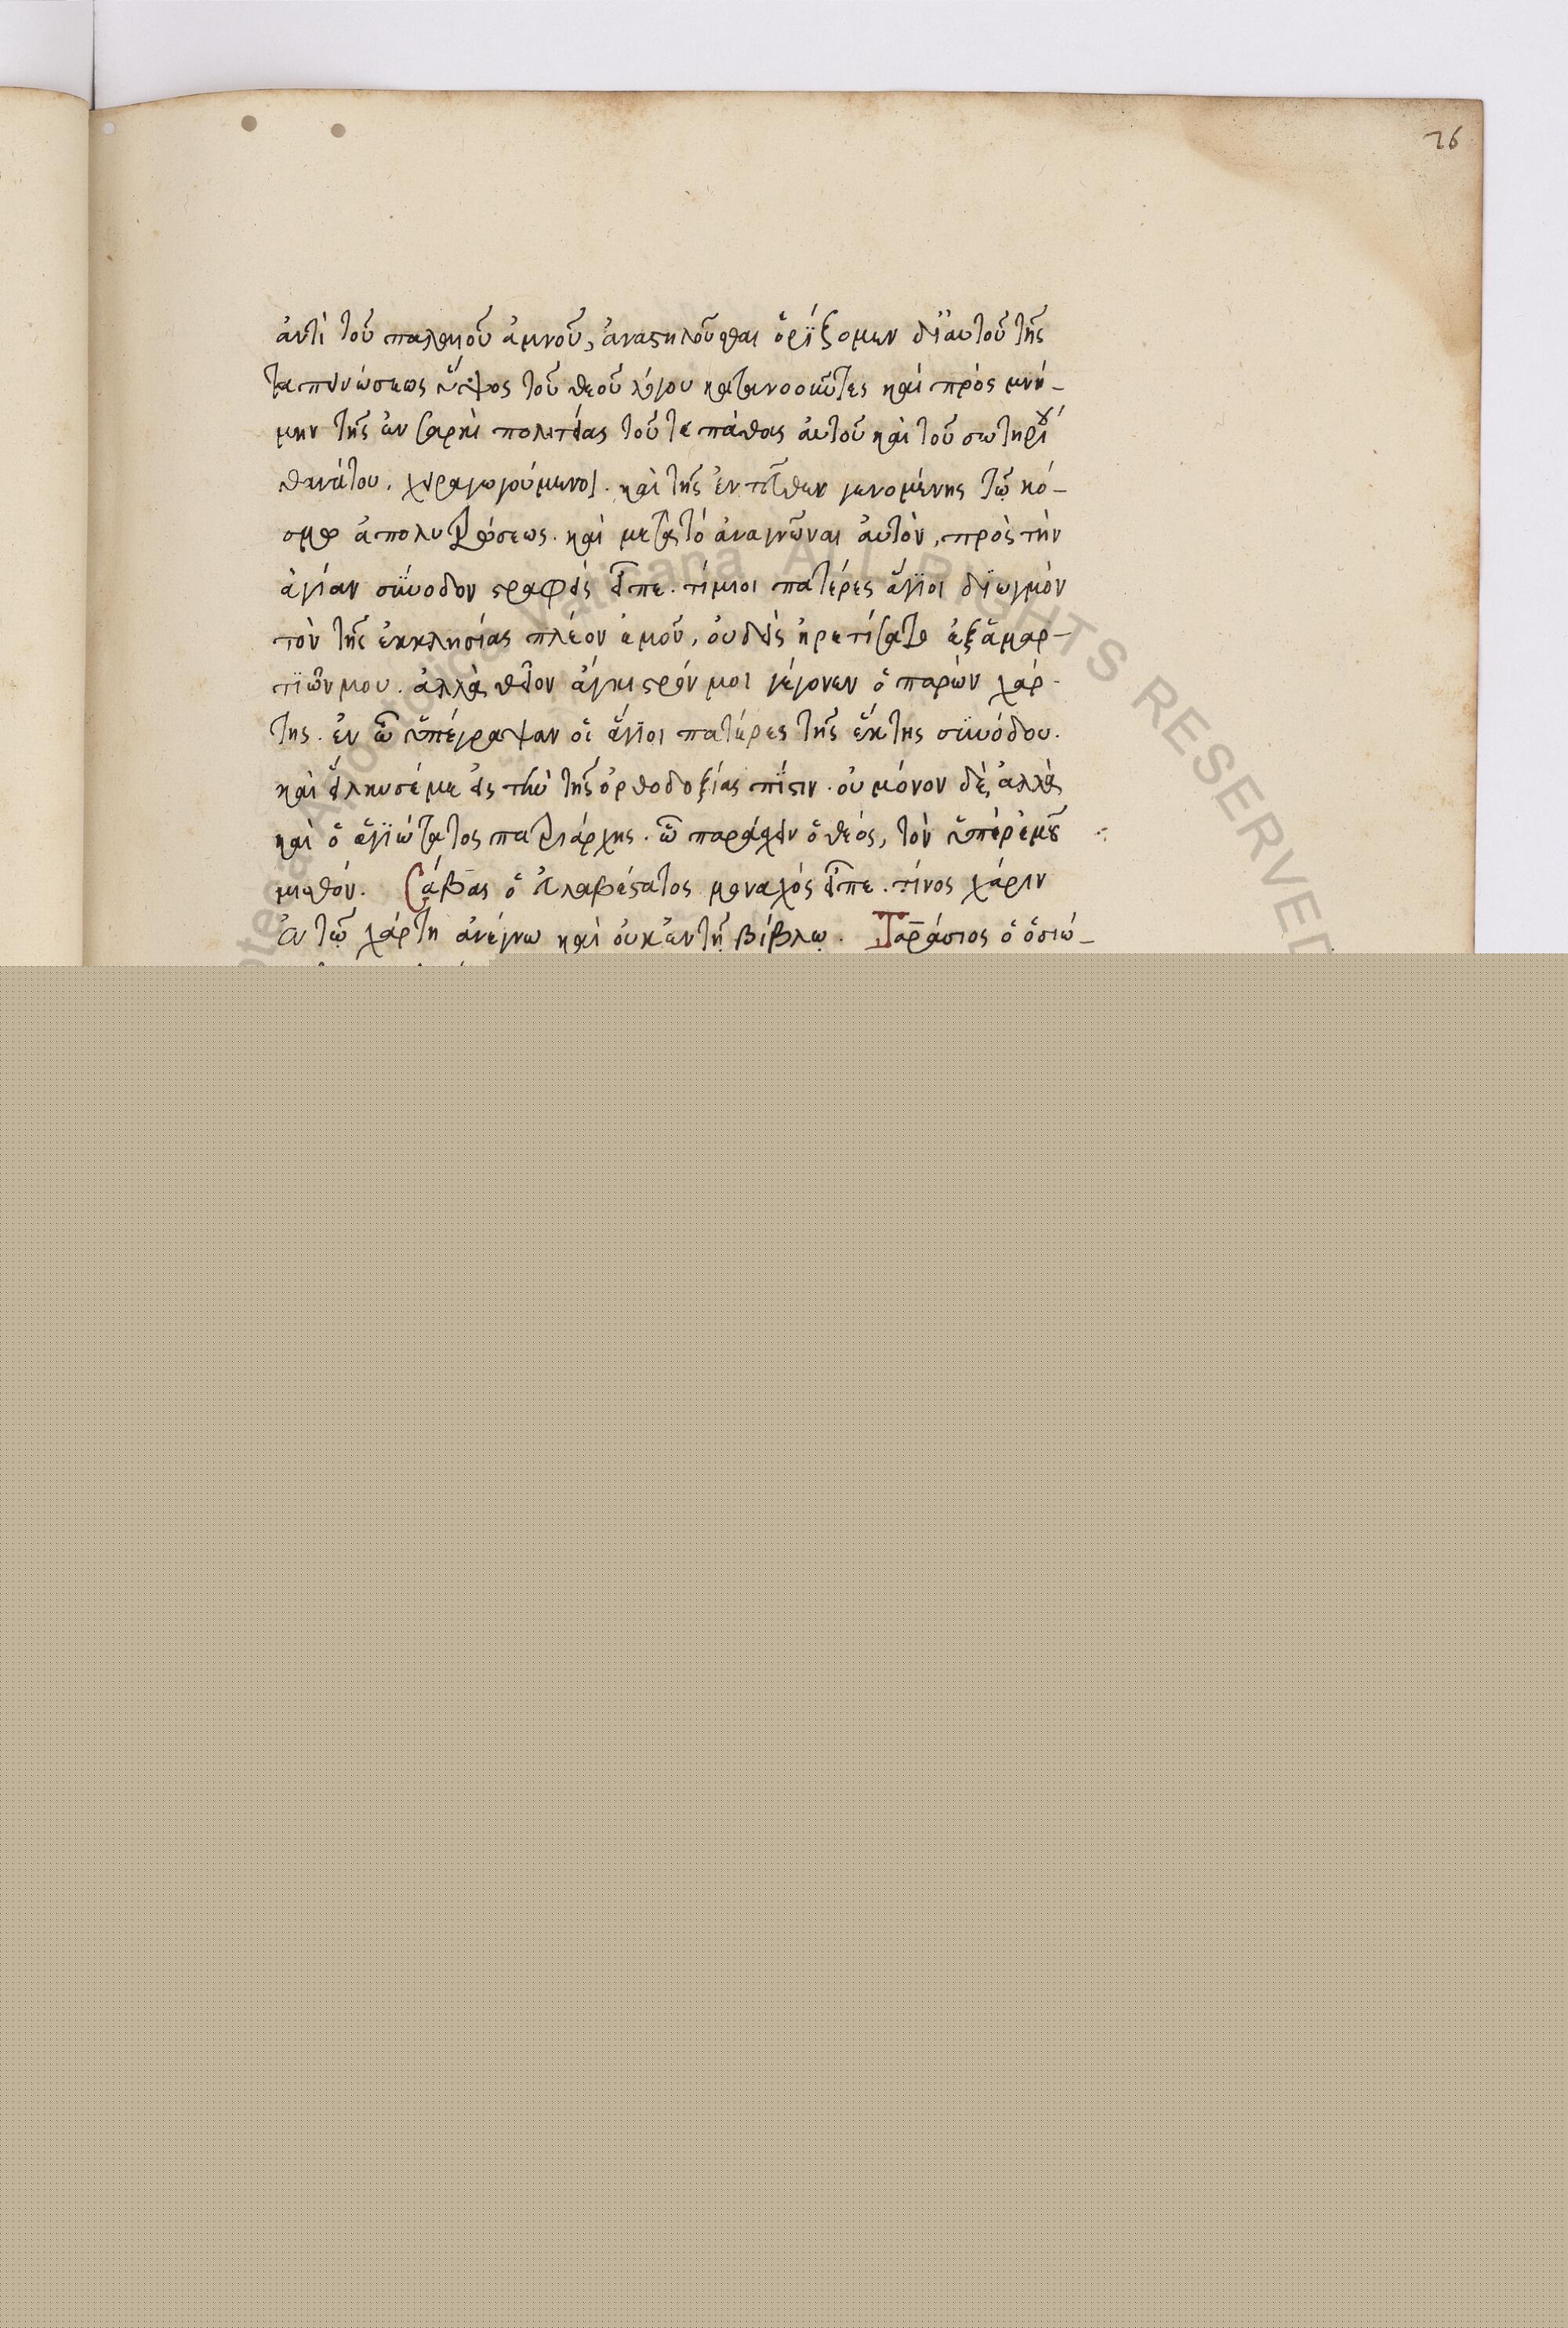 26
ἀντὶ τοῦ παλαιοῦ ἀμνοῦ, ἀναστηλοῦσθαι ὁρΐζομεν δι' αυτοῦ τῆς
ταπεινώσεως ὕψος τοῦ θεοῦ λόγου κατανοοῦντες καὶ πρὸς μνή-
μην τῆς ἐν σαρκὶ πολιτείας τοῦ τε πάθους αὐτοῦ καὶ τοῦ σωτηρίου
θανάτου, χειραγωγούμενοι. καὶ τῆς ἐντεῦθεν γενομένης τῷ κό-
σμῳ ἀπολυτρώσεως. καὶ μετὰ τὸ ἀναγνῶναι αὐτὸν, πρὸς τὴν
ἁγίαν σύνοδον στραφεὶς εἶπε. τίμιοι πατέρες ἅγϊοι δϊωγμὸν
τὸν τῆς ἐκκλησίας πλέον ἐμοῦ, οὐδεὶς ᾑρετίσατο ἐξ ἁμαρ-
τϊῶν μου. ἀλλὰ θεῖον ἄγκιστρόν μοι γέγονεν ὁ παρὼν χάρ-
της. ἐν ᾧ ὑπέγραψαν οἱ ἅγϊοι πατέρες τῆς ἕκτης συνόδου.
καὶ εἵλκυσέ με εἰς τὴν τῆς ὀρθοδοξίας πίστιν. οὐ μόνον δὲ, ἀλλὰ
καὶ ὁ ἁγϊώτατος πατριάρχης. ᾧ παράσχειν ὁ θεός, τὸν ὑπὲρ ἐμοῦ
μισθόν. Σάβας ὁ εὐλαβέστατος μοναχός εἶπε. τίνος χάριν
ἐν τῷ χάρτη ἀνέγνω καὶ οὐκ ἐν τῇ βίβλῳ. Ταράσιος ὁ ὁσιώ-
ALL RIGHTS RESERVED